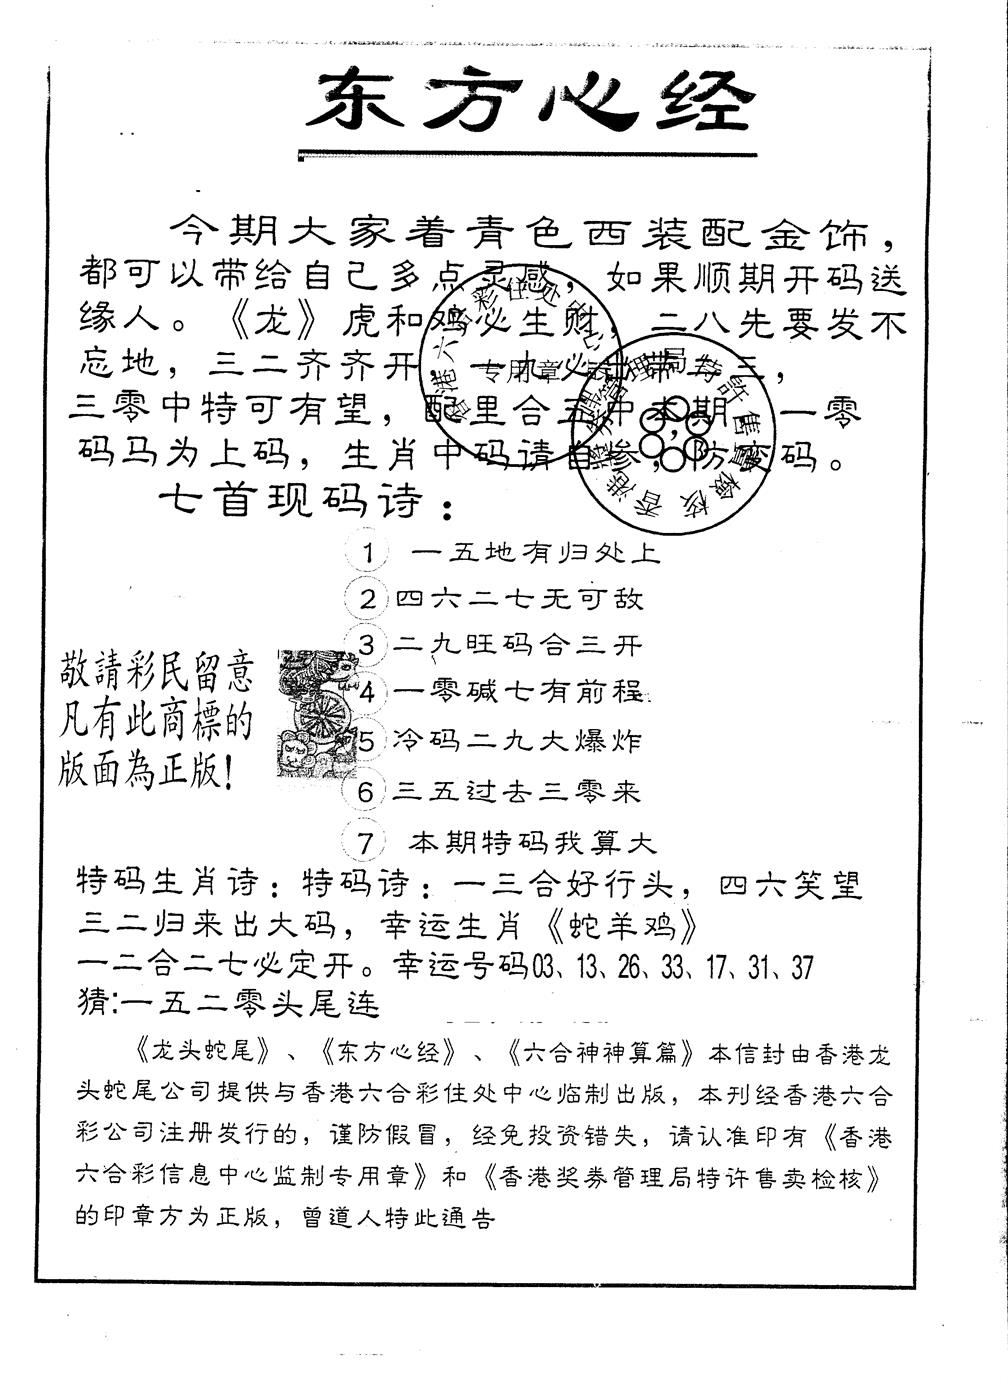 东方心经
今期大家着青色西装配金饰，
都可以带给自己多点灵感，如果顺期开码送
缘人。《龙》虎和鸡必生财，二八先要发不
忘地，三二齐齐开，一九必出带一三，
三零中特可有望，配里合五中本期，一零
码马为上码，生肖中码请自参，防
码。
七首现码诗：
1 一五地有归处上
2 四六二七无可敌
3 二九旺码合三开
4 一零碱七有前程
5 冷码二九大爆炸
6 三五过去三零来
7 本期特码我算大
敬請彩民留意
凡有此商標的
版面為正版！
特码生肖诗：特码诗：一三合好行头，四六笑望
三二归来出大码，幸运生肖《蛇羊鸡》
一二合二七必定开。幸运号码03、13、26、33、17、31、37
猜：一五二零头尾连
《龙头蛇尾》、《东方心经》、《六合神神算篇》本信封由香港龙
头蛇尾公司提供与香港六合彩住处中心临制出版，本刊经香港六合
彩公司注册发行的，谨防假冒，经免投资错失，请认准印有《香港
六合彩信息中心监制专用章》和《香港奖券管理局特许售卖检核》
的印章方为正版，曾道人特此通告
香港六合彩住处中心
专用章
香港獎券管理局特許售賣檢核